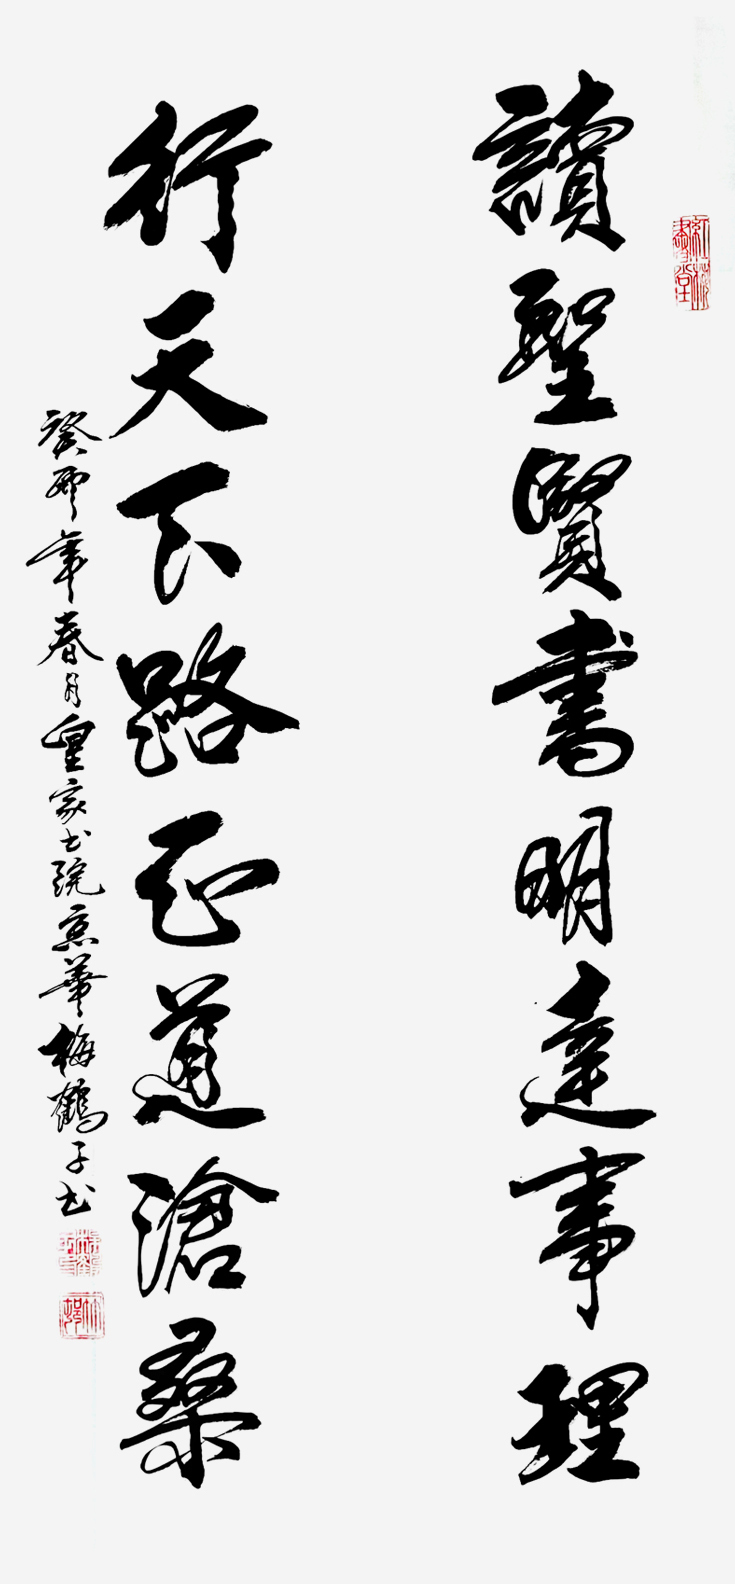 讀聖賢書明達事理
行天下路正道滄桑
癸卯年春月皇家书院京華梅鶴子书